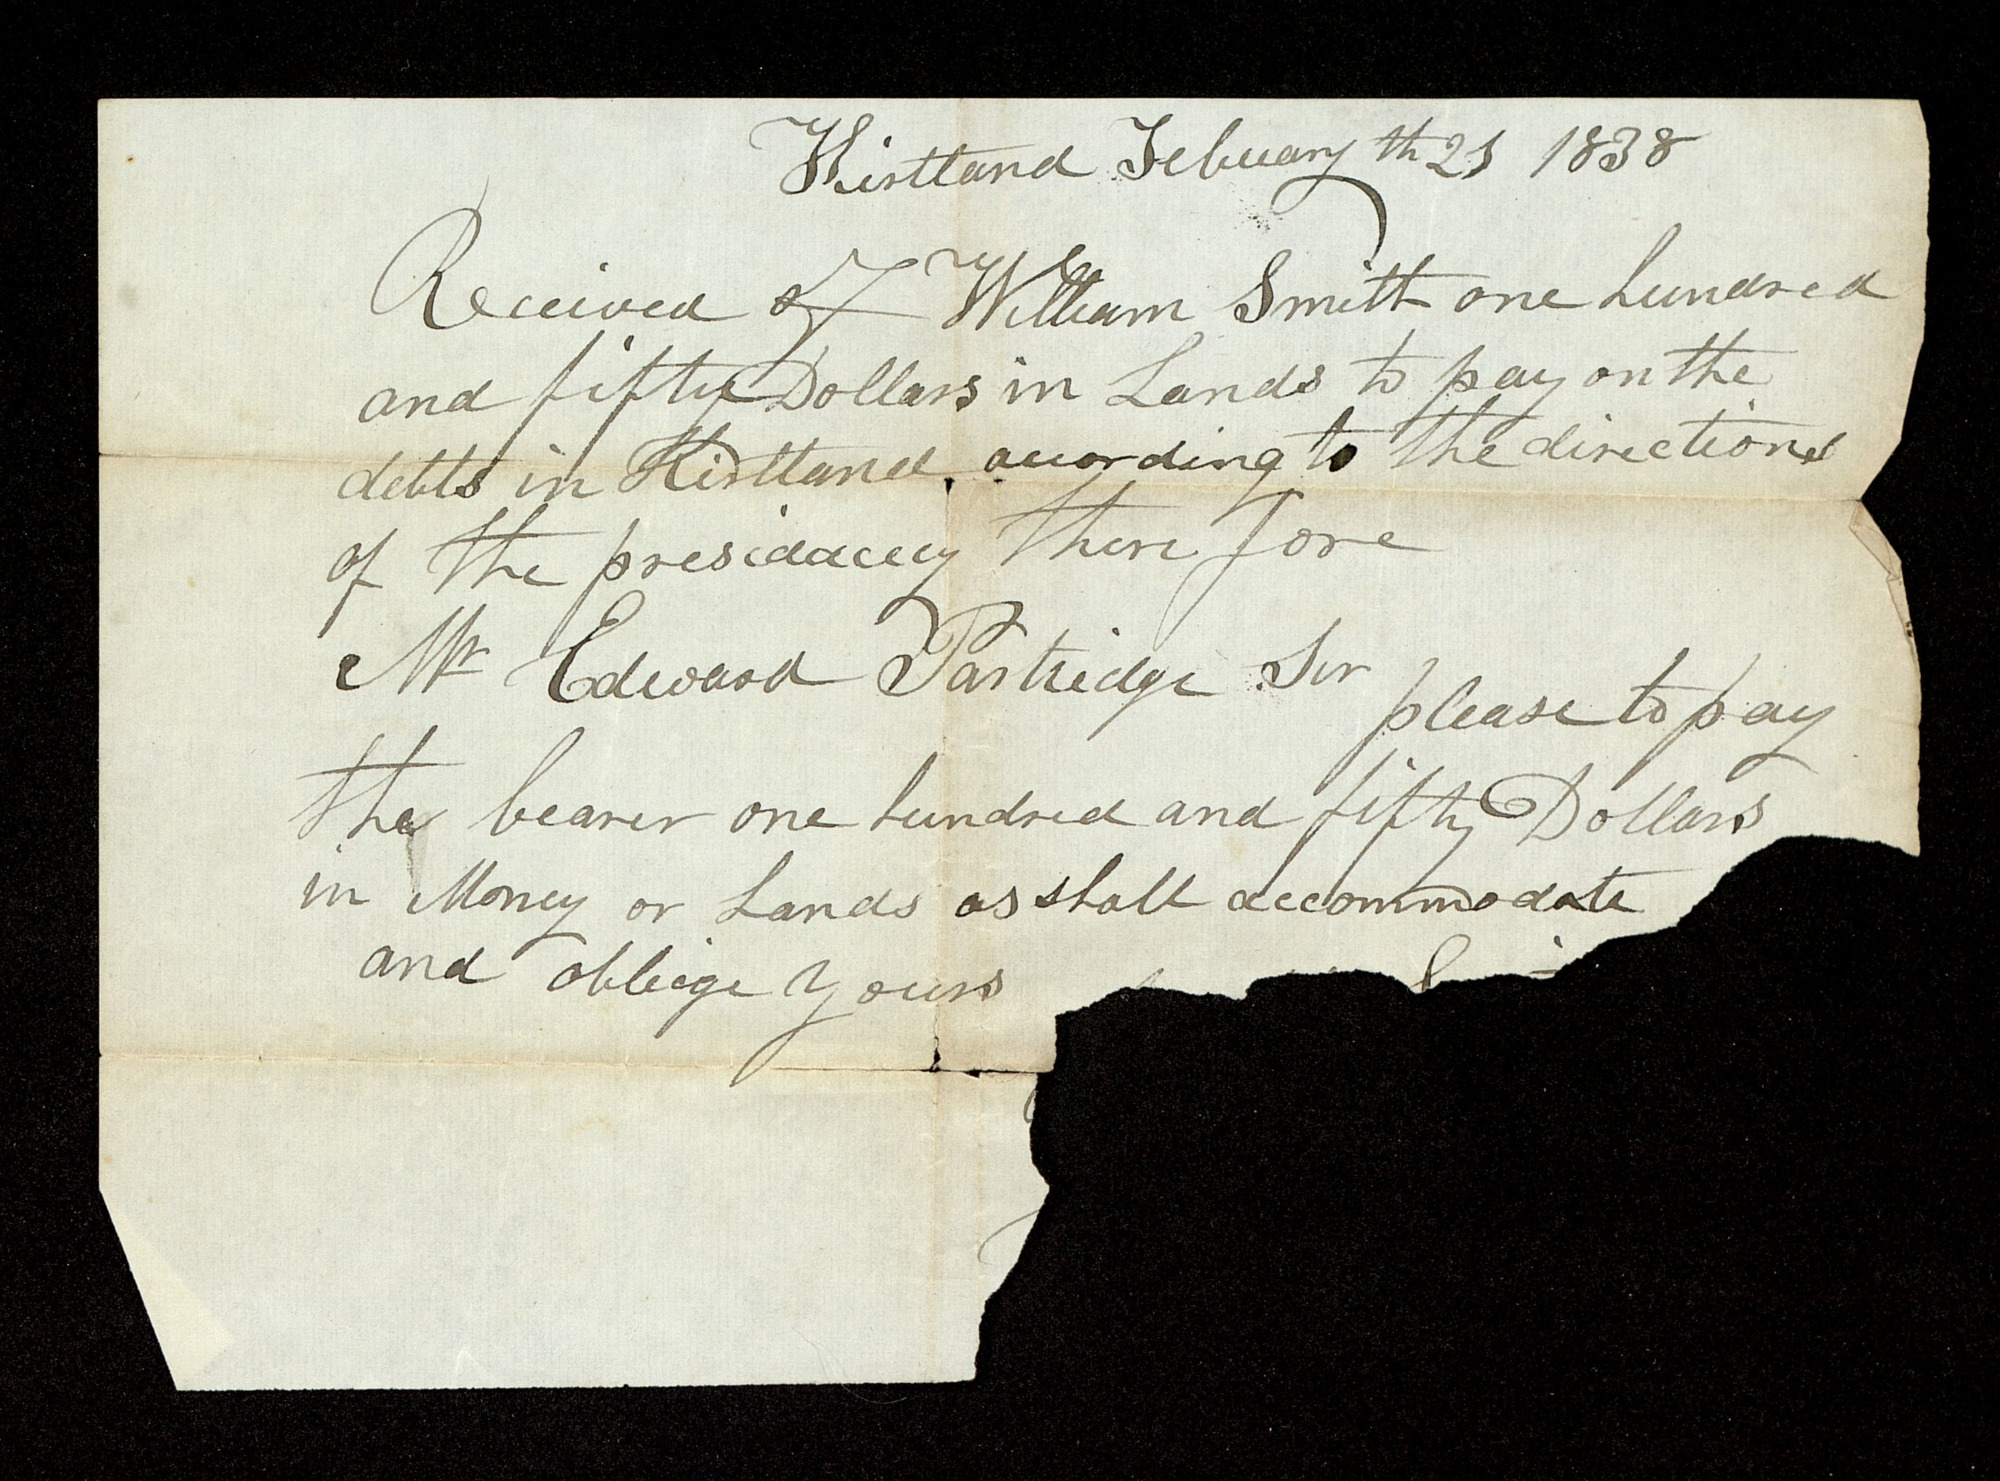 Kirtland Febuary th 21 1838
Received of William Smith one hundred
and fifty Dollars in Lands to pay on the
debts in Kirtland acording to the directions
of the presidacey there fore
Mr Edward Partridge Sir please to pay
the bearer one hundred and fifty Dollars
in Money or Lands as shall accommodate
and obliege yours